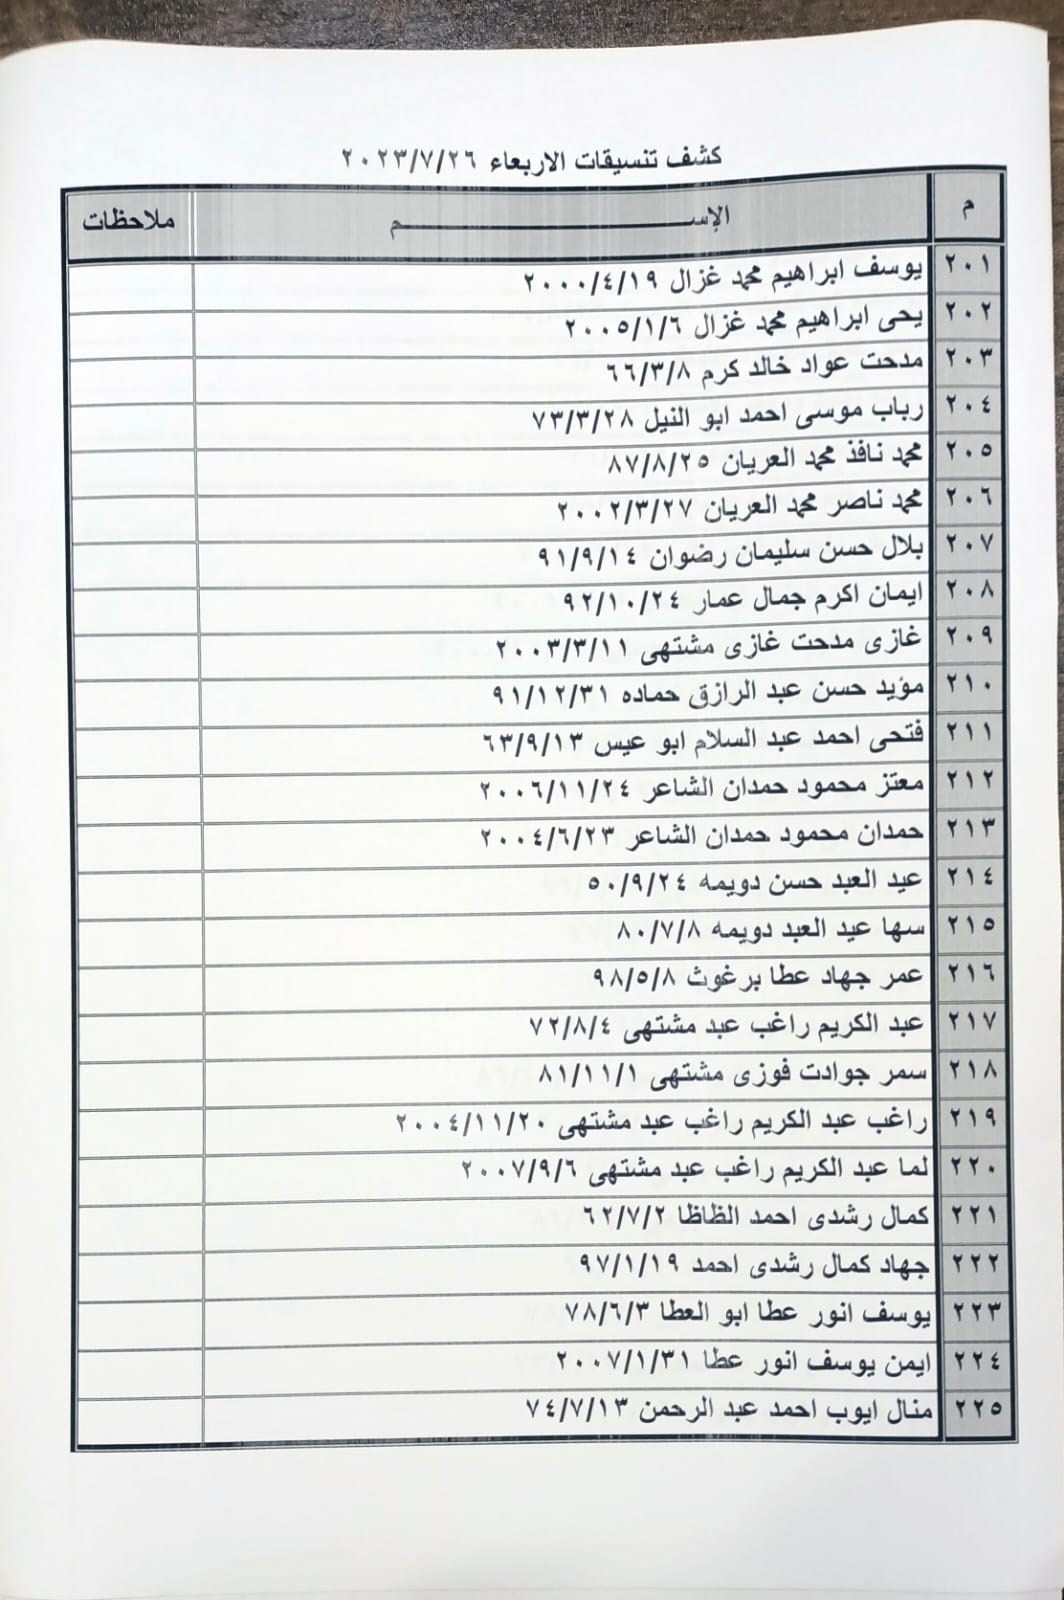 كشف تنسيقات الاربعاء ٢٠٢٣/٧/٢٦
م الإســـــــــم ملاحظات
٢٠١ يوسف ابراهيم محمد غزال ٢٠٠٠/٤/١٩
٢٠٢ يحى ابراهيم محمد غزال ٢٠٠٥/١/٦
٢٠٣ مدحت عواد خالد كرم ٦٦/٣/٨
٢٠٤ رباب موسى احمد ابو النيل ٧٣/٣/٢٨
٢٠٥ محمد نافذ محمد العريان ٨٧/٨/٢٥
٢٠٦ محمد ناصر محمد العريان ٢٠٠٢/٣/٢٧
٢٠٧ بلال حسن سليمان رضوان ٩١/٩/١٤
٢٠٨ ايمان اكرم جمال عمار ٩٢/١٠/٢٤
٢٠٩ غازى مدحت غازى مشتهى ٢٠٠٣/٣/١١
٢١٠ مؤيد حسن عبد الرازق حماده ٩١/١٢/٣١
٢١١ فتحى احمد عبد السلام ابو عيس ٦٣/٩/١٣
٢١٢ معتز محمود حمدان الشاعر ٢٠٠٦/١١/٢٤
٢١٣ حمدان محمود حمدان الشاعر ٢٠٠٤/٦/٢٣
٢١٤ عيد العبد حسن دويمه ٥٠/٩/٢٤
٢١٥ سها عيد العبد دويمه ٨٠/٧/٨
٢١٦ عمر جهاد عطا برغوث ٩٨/٥/٨
٢١٧ عبد الكريم راغب عبد مشتهى ٧٢/٨/٤
٢١٨ سمر جوادت فوزى مشتهى ٨١/١١/١
٢١٩ راغب عبد الكريم راغب عبد مشتهى ٢٠٠٤/١١/٢٠
٢٢٠ لما عبد الكريم راغب عبد مشتهى ٢٠٠٧/٩/٦
٢٢١ كمال رشدى احمد الظاظا ٦٢/٧/٢
٢٢٢ جهاد كمال رشدى احمد ٩٧/١/١٩
٢٢٣ يوسف انور عطا ابو العطا ٧٨/٦/٣
٢٢٤ ايمن يوسف انور عطا ٢٠٠٧/١/٣١
٢٢٥ منال ايوب احمد عبد الرحمن ٧٤/٧/١٣